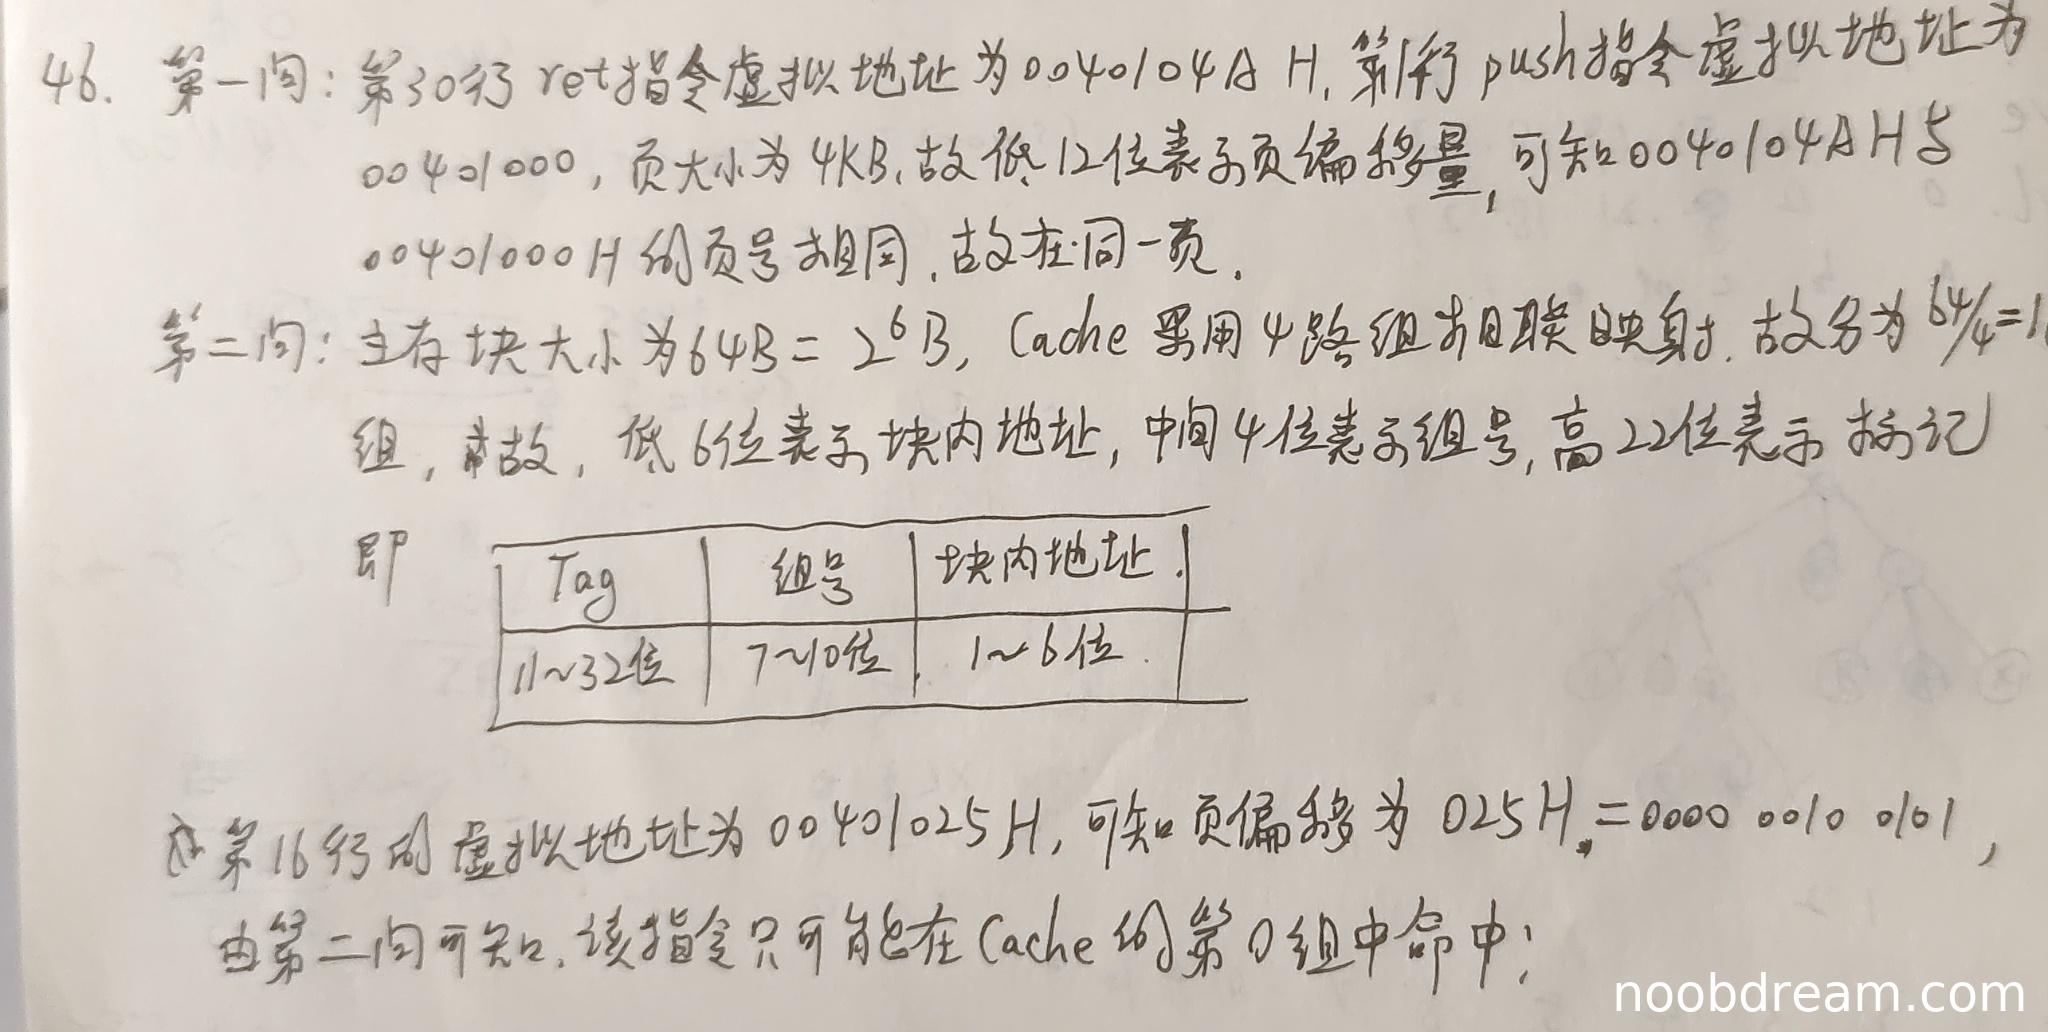 46. 第一问: 第30行 ret指令虚拟地址为0040104A H, 第1行 push指令虚拟地址为
00401000, 页大小为4KB, 故低12位表示页偏移量, 可知0040104AH与
00401000H的页号相同, 故在同一页.
第二问: 主存块大小为64B = 2⁶B, Cache 采用4路组相联映射. 故分为 64/4=1
组, 故, 低6位表示块内地址, 中间4位表示组号, 高22位表示标记
即
Tag 组号 块内地址.
11~32位 7~10位 1~6位.
第16行的虚拟地址为00401025H, 可知页偏移为 025H = 0000 0010 0101,
由第二问可知, 该指令只可能在Cache的第0组中命中;
noobdream.com